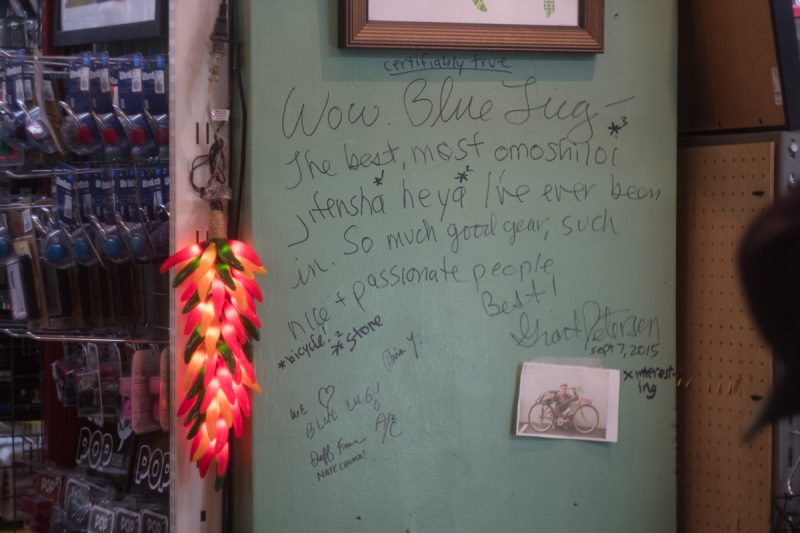 certifiably true
Wow. Blue Lug—
The best, most omoshiloi *3
jitensha *1 heya *2 I've ever been
in. So much good gear, such
nice + passionate people.
Best!
Grant Petersen
sept 7, 2015
*bicycle! *2 store
*interest-
ing
WE ♡
BLUE LUG!
A/C
POP
POP